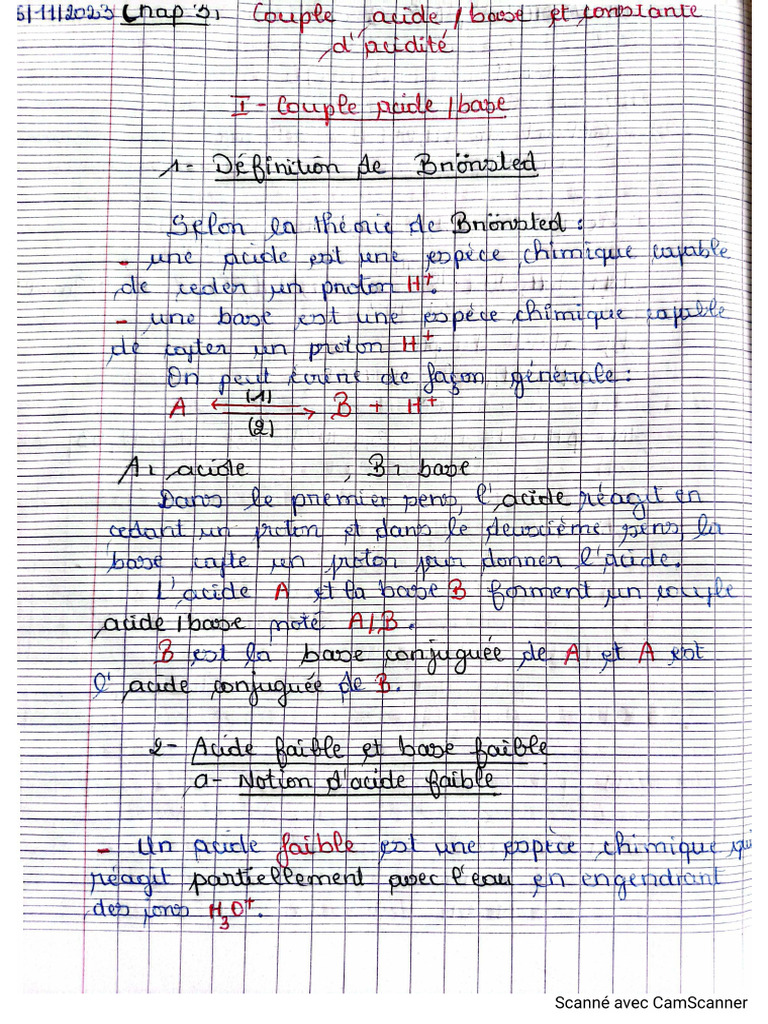 5/11/2023 Chap 3: Couple acide/base et constante
d'acidité
I - Couple acide/base
1- Définition de Brönsted
Selon la théorie de Brönsted :
- une acide est une espèce chimique capable
de ceder un proton H⁺.
- une base est une espèce chimique capable
de capter un proton H⁺.
On peut écrire de façon générale :
(1)
A ⇄ B + H⁺
(2)
A: acide ; B: base
Dans le premier sens, l'acide réagit en
cedant un proton et dans le deuxième sens, la
base capte un proton pour donner l'acide.
L'acide A et la base B forment un couple
acide/base noté A/B.
B est la base conjuguée de A et A est
l'acide conjuguée de B.
2- Acide faible et base faible
a- Notion d'acide faible
- Un acide faible est une espèce chimique qui
réagit partiellement avec l'eau en engendrant
des ions H₃O⁺.
Scanné avec CamScanner